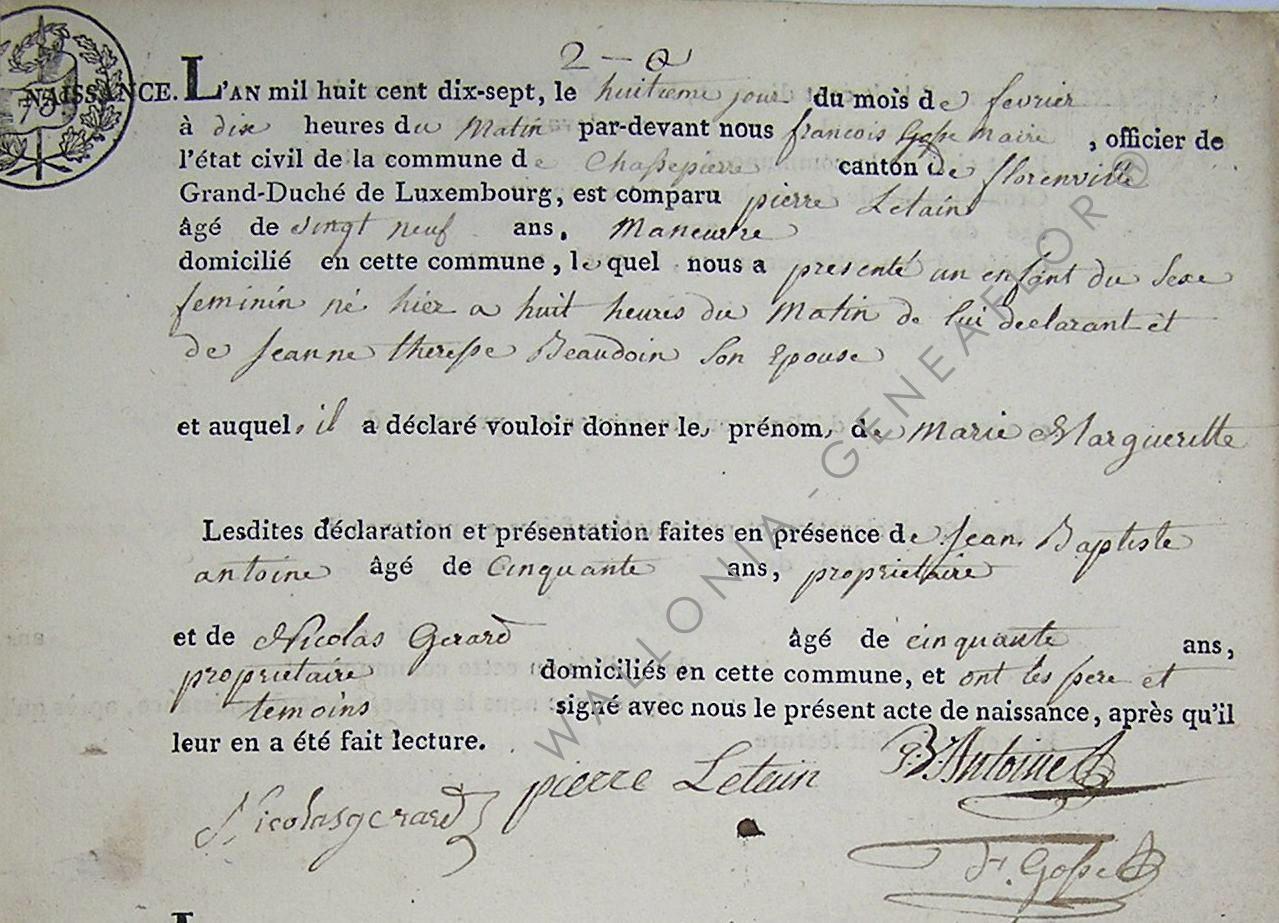 75
2 – a
NAISSANCE. L'AN mil huit cent dix-sept, le huitieme jour du mois de fevrier
à dix heures du Matin par-devant nous francois Gosse Maire, officier de
l'état civil de la commune de Chassepierre canton de florenville
Grand-Duché de Luxembourg, est comparu pierre Letain
âgé de vingt neuf ans, Maneuvre
domicilié en cette commune, le quel nous a presenté un enfant du Sexe
feminin né hier a huit heures du Matin de lui declarant et
de Jeanne theresse Beaudoin Son Epouse
et auquel il a déclaré vouloir donner le prénom de Marie Margueritte
Lesdites déclaration et présentation faites en présence de Jean Baptiste
antoine âgé de Cinquante ans, proprietaire
et de Nicolas Gerard âgé de cinquante ans,
proprietaire domiciliés en cette commune, et ont les pere et
temoins signé avec nous le présent acte de naissance, après qu'il
leur en a été fait lecture.
pierre Letain J.B. Antoine
Nicolas gerard
f. Gosse
WALLONIA-GENEAFLOR®